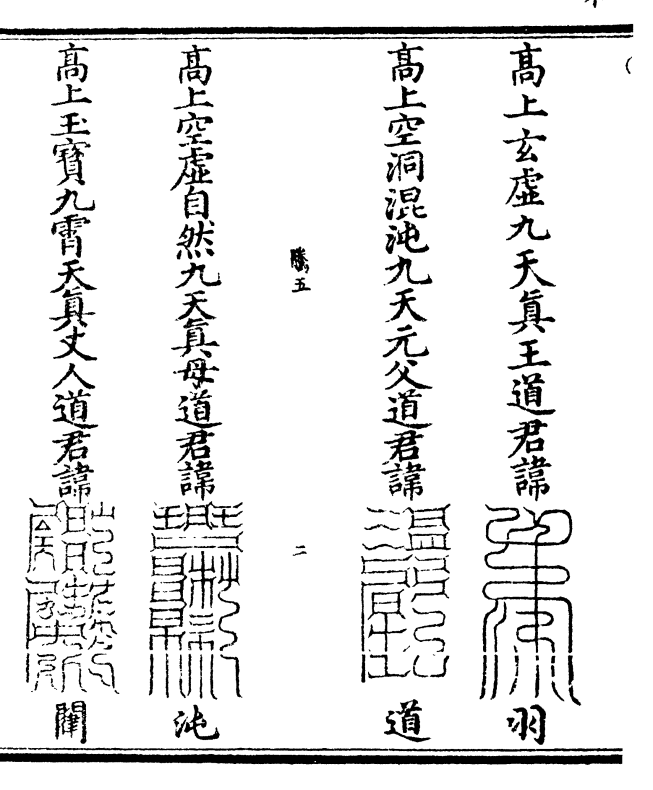 高上玄虛九天眞王道君諱
羽
高上空洞混沌九天元父道君諱
道
騰五
二
高上空虛自然九天眞母道君諱
沌
高上玉寶九霄天眞丈人道君諱